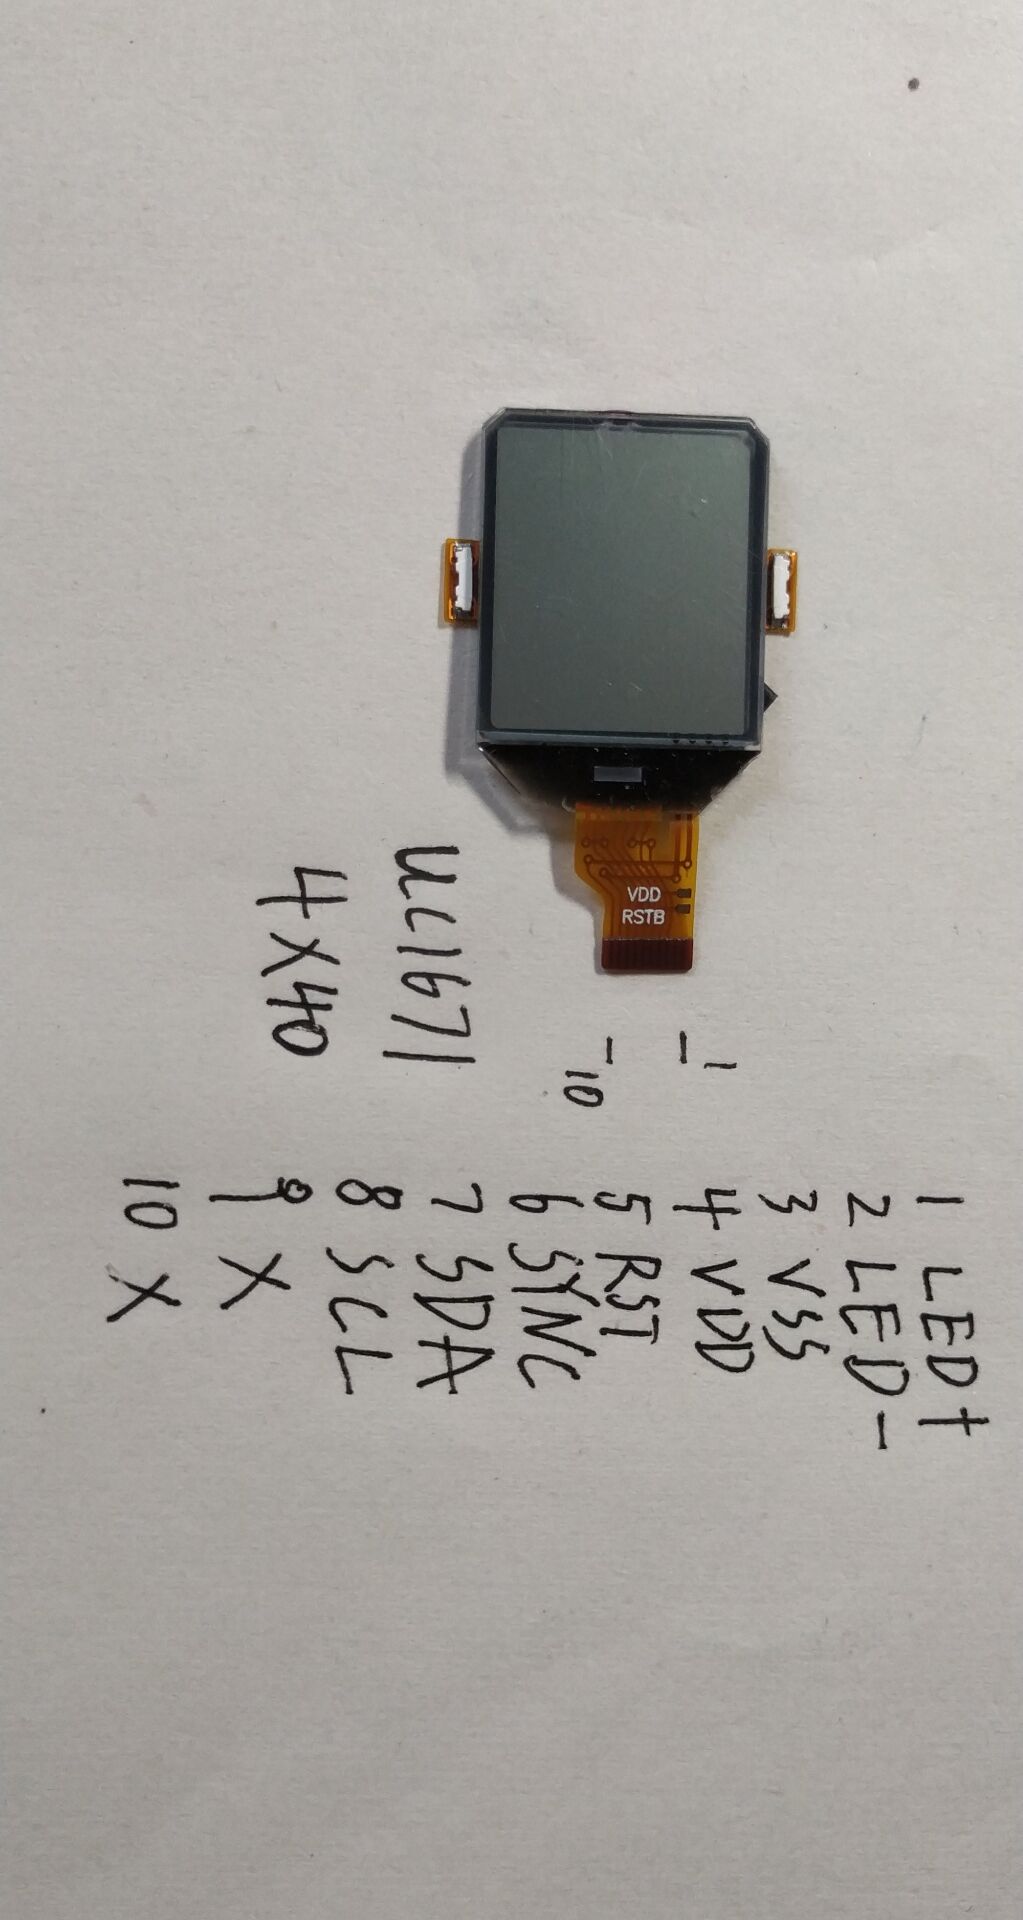 VDD
RSTB
UC1671
4X40
1
10
1 LED+
2 LED-
3 VSS
4 VDD
5 RST
6 SYNC
7 SDA
8 SCL
9 X
10 X